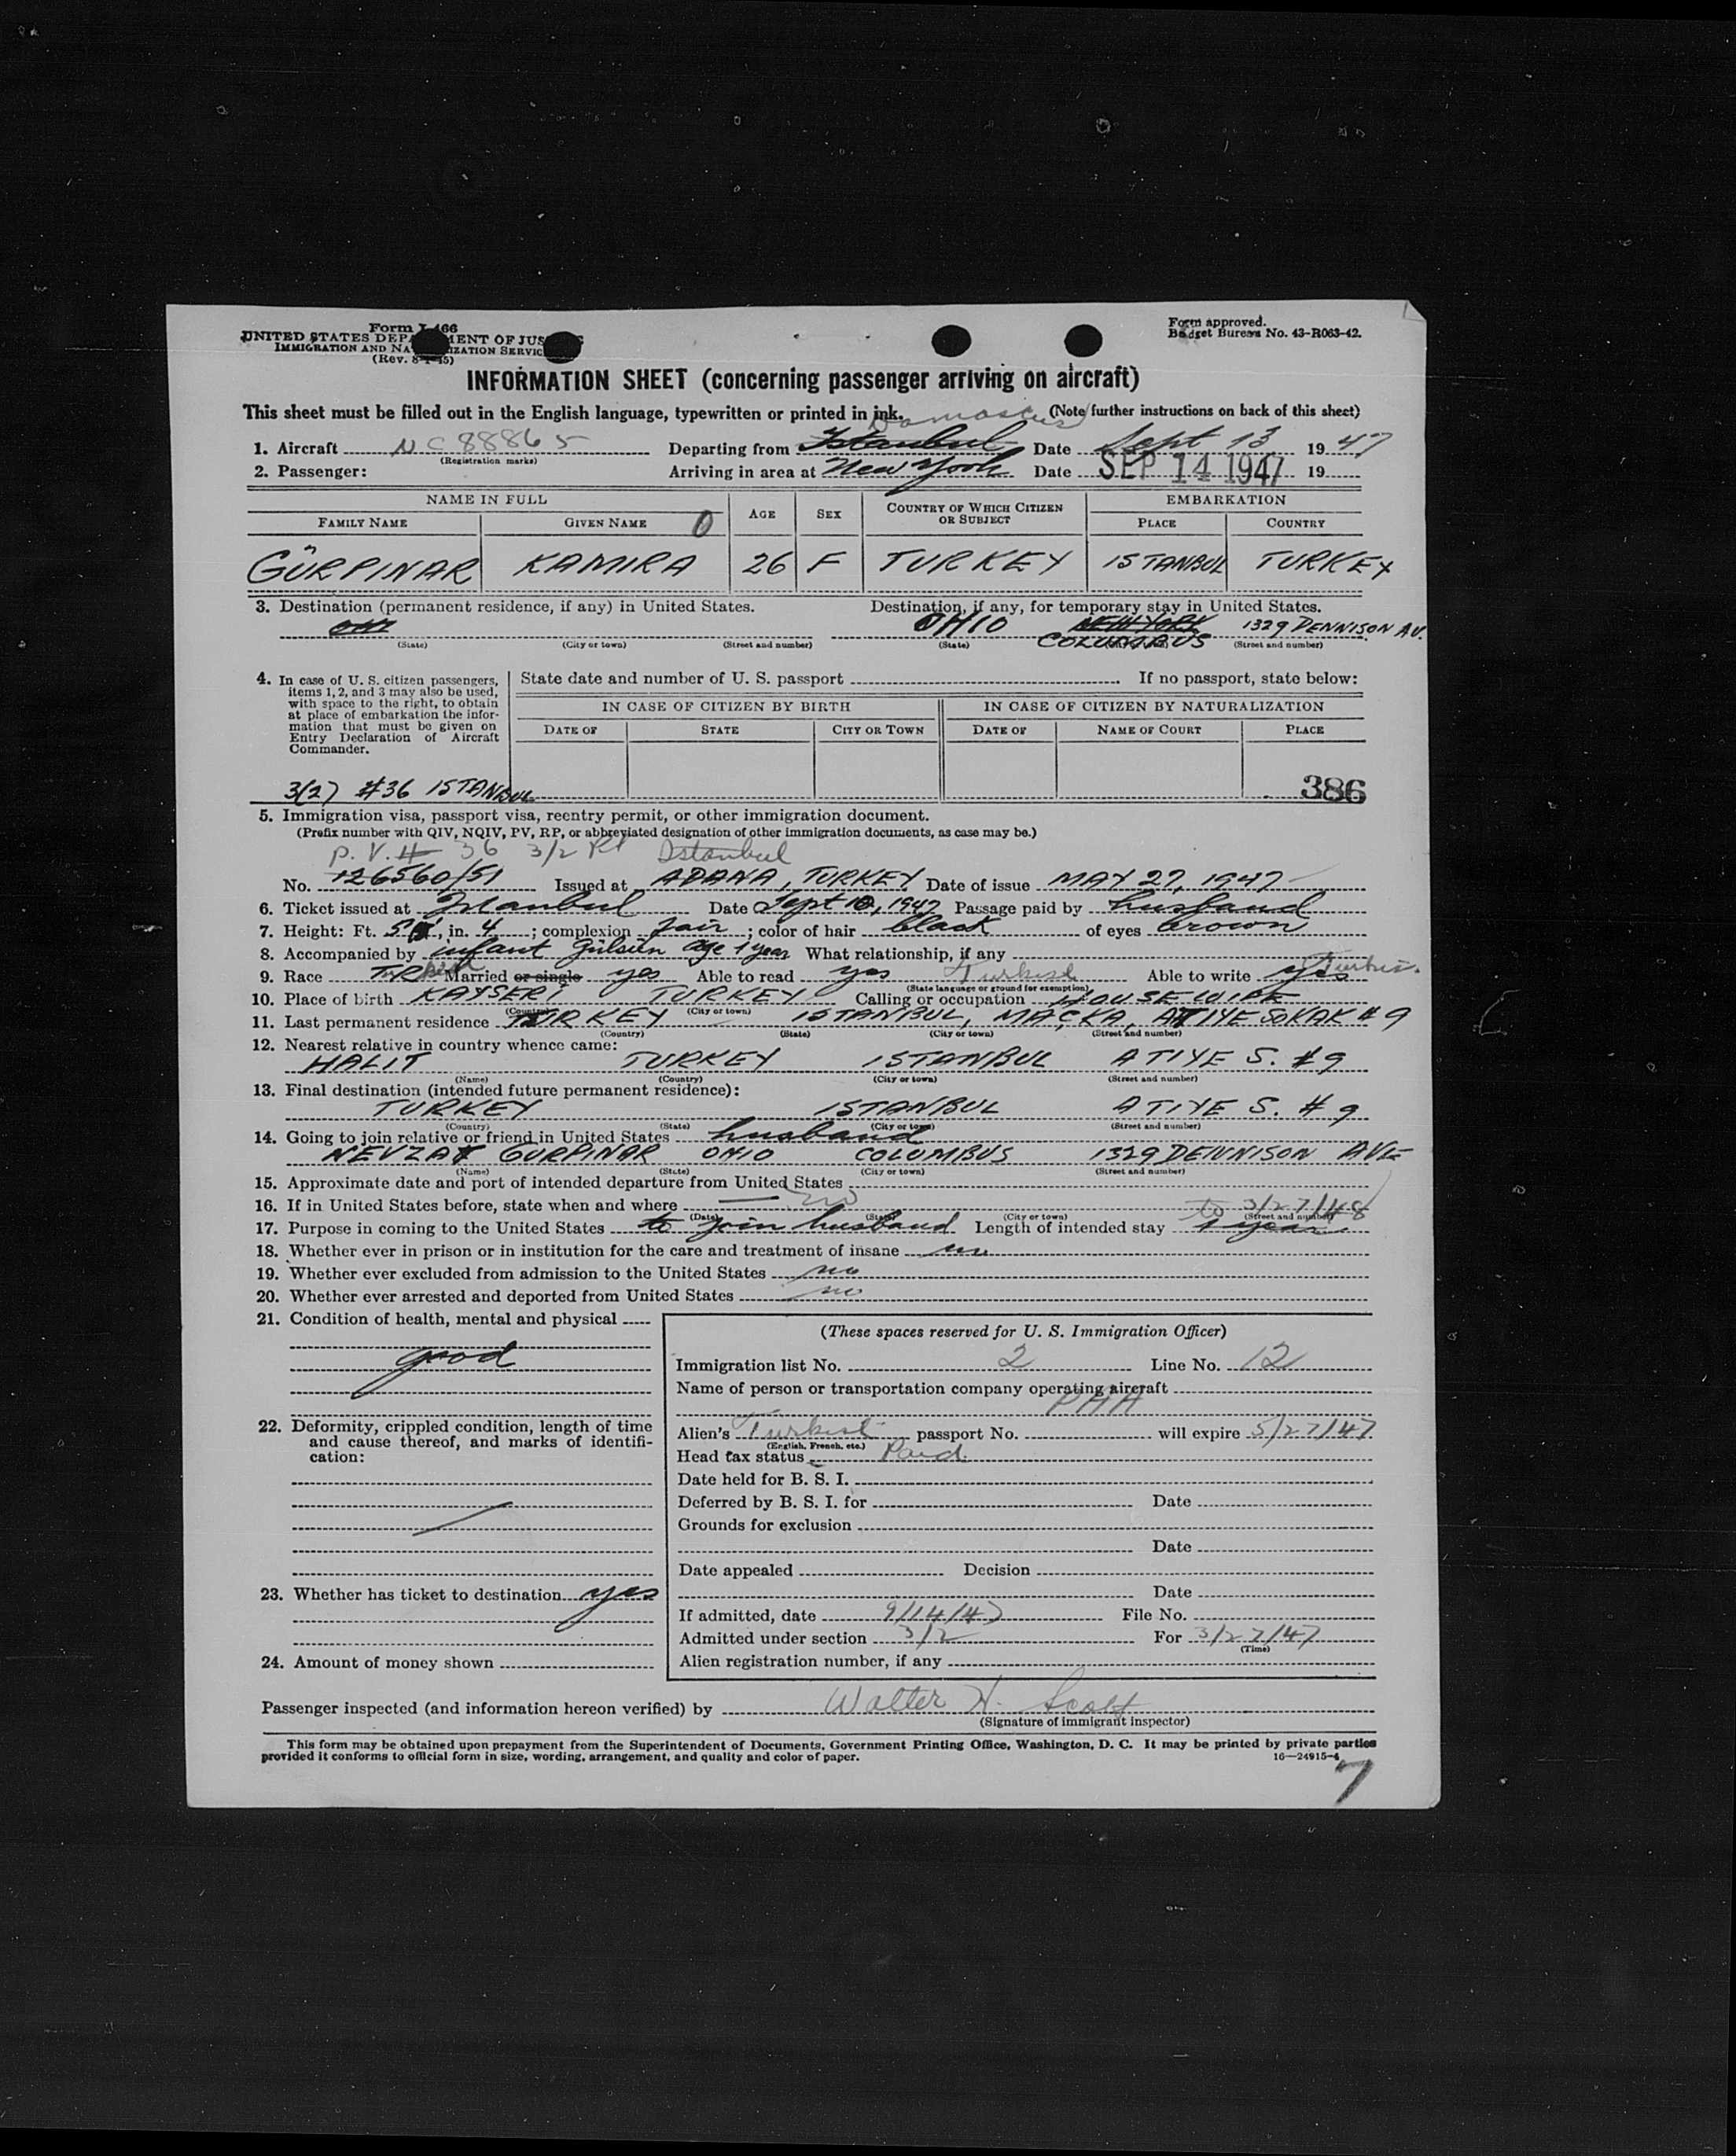 Form I-466
UNITED STATES DEPARTMENT OF JUSTICE
IMMIGRATION AND NATURALIZATION SERVICE
(Rev. 8-1-45)
Form approved.
Budget Bureau No. 43-R063-42.
INFORMATION SHEET (concerning passenger arriving on aircraft)
This sheet must be filled out in the English language, typewritten or printed in ink. (Note further instructions on back of this sheet)
Damascus
1. Aircraft NC 88865 Departing from Istanbul Date Sept 13 1947
(Registration marks)
2. Passenger: Arriving in area at New York Date SEP 14 1947 19
NAME IN FULL AGE SEX COUNTRY OF WHICH CITIZEN OR SUBJECT EMBARKATION
FAMILY NAME GIVEN NAME 0 PLACE COUNTRY
GÜRPINAR KAMIRA 26 F TURKEY ISTANBUL TURKEY
3. Destination (permanent residence, if any) in United States. Destination, if any, for temporary stay in United States.
OHIO NEW YORK 1329 DENNISON AV.
COLUMBUS
(State) (City or town) (Street and number) (State) (City or town) (Street and number)
4. In case of U. S. citizen passengers, items 1, 2, and 3 may also be used, with space to the right, to obtain at place of embarkation the information that must be given on Entry Declaration of Aircraft Commander.
State date and number of U. S. passport If no passport, state below:
IN CASE OF CITIZEN BY BIRTH IN CASE OF CITIZEN BY NATURALIZATION
DATE OF STATE CITY OR TOWN DATE OF NAME OF COURT PLACE
3(2) #36 ISTANBUL 386
5. Immigration visa, passport visa, reentry permit, or other immigration document.
(Prefix number with QIV, NQIV, PV, RP, or abbreviated designation of other immigration documents, as case may be.)
P. V. # 36 3/2 Istanbul
No. 126560/51 Issued at ADANA, TURKEY Date of issue MAY 27, 1947
6. Ticket issued at Istanbul Date Sept 10, 1947 Passage paid by husband
7. Height: Ft. 5, in. 4; complexion fair; color of hair black of eyes brown
8. Accompanied by infant Gülsün age 1 year What relationship, if any
9. Race Married or single yes Able to read yes Turkish Able to write yes Turkish
(State language or ground for exemption)
10. Place of birth KAYSERI TURKEY Calling or occupation HOUSE WIFE
(Country) (City or town)
11. Last permanent residence TURKEY ISTANBUL, MAÇKA, ATIYE SOKAK # 9
(Country) (State) (City or town) (Street and number)
12. Nearest relative in country whence came:
HALIT TURKEY ISTANBUL ATIYE S. #9
(Name) (Country) (City or town) (Street and number)
13. Final destination (intended future permanent residence):
TURKEY ISTANBUL ATIYE S. # 9
(Country) (State) (City or town) (Street and number)
14. Going to join relative or friend in United States husband
NEVZAT GURPINAR OHIO COLUMBUS 1329 DENNISON AVE
(Name) (State) (City or town) (Street and number)
15. Approximate date and port of intended departure from United States
16. If in United States before, state when and where no to 3/27/48
(Date) (State) (City or town) (Street and number)
17. Purpose in coming to the United States to join husband Length of intended stay 1 year
18. Whether ever in prison or in institution for the care and treatment of insane no
19. Whether ever excluded from admission to the United States no
20. Whether ever arrested and deported from United States no
21. Condition of health, mental and physical
good
22. Deformity, crippled condition, length of time and cause thereof, and marks of identification:
23. Whether has ticket to destination yes
24. Amount of money shown
(These spaces reserved for U. S. Immigration Officer)
Immigration list No. 2 Line No. 12
Name of person or transportation company operating aircraft
PAA
Alien's Turkish passport No. will expire 5/27/47
(English, French, etc.)
Head tax status Paid
Date held for B. S. I.
Deferred by B. S. I. for Date
Grounds for exclusion
Date
Date appealed Decision
Date
If admitted, date 9/14/47 File No.
Admitted under section 3/2 For 3/27/47
(Time)
Alien registration number, if any
Passenger inspected (and information hereon verified) by Walter H. Scott
(Signature of immigrant inspector)
This form may be obtained upon prepayment from the Superintendent of Documents, Government Printing Office, Washington, D. C. It may be printed by private parties
provided it conforms to official form in size, wording, arrangement, and quality and color of paper. 16—24915-4
7